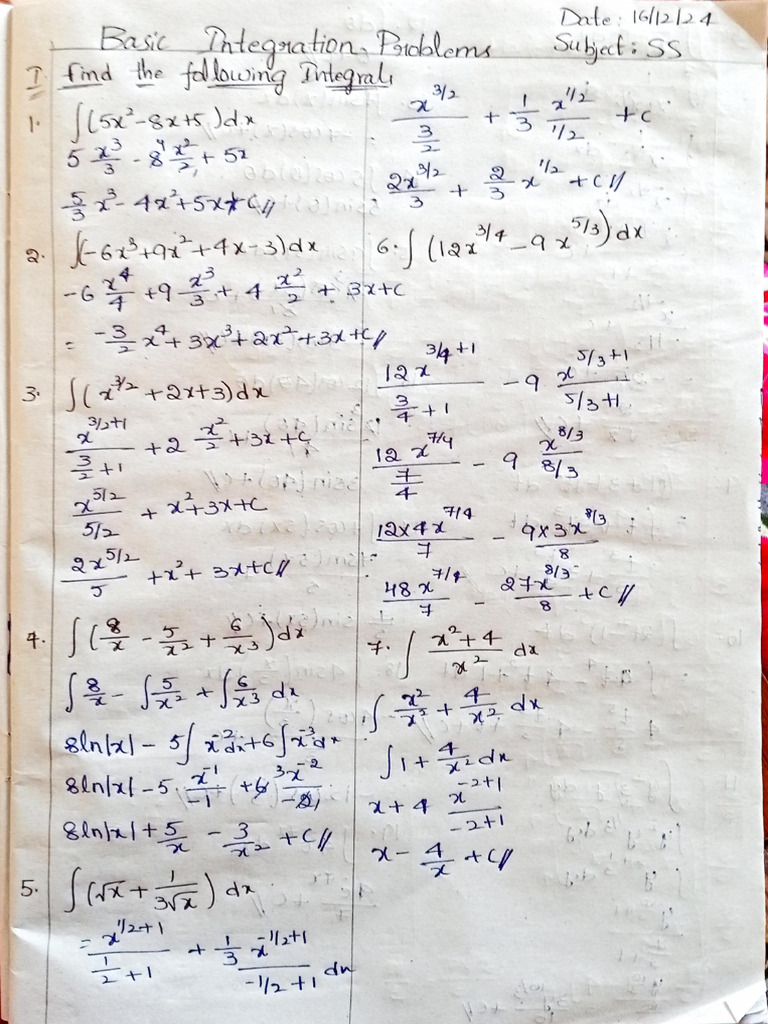 Date: 16/12/24
Basic Integration Problems
Subject: SS
I. Find the following Integrals
1. ∫(5x²-8x+5)dx
5 x³/3 - 8 ⁴ x²/2 + 5x
5/3 x³ - 4x² + 5x + C//
2. ∫(-6x³+9x²+4x-3)dx
-6 x⁴/4 + 9 x³/3 + 4 x²/2 + 3x+c
= -3/2 x⁴ + 3x³ + 2x² + 3x + C//
3. ∫(x^3/2 + 2x+3)dx
x^3/2+1 / 3/2 + 1 + 2 x²/2 + 3x + C
x^5/2 / 5/2 + x² + 3x + C
2x^5/2 / 5 + x² + 3x + C//
4. ∫(8/x - 5/x² + 6/x³)dx
∫8/x - ∫5/x² + ∫6/x³ dx
8ln|x| - 5∫x⁻²dx + 6∫x⁻³dx
8ln|x| - 5 x⁻¹/-1 + 6 ³ x⁻²/-2
8ln|x| + 5/x - 3/x² + C//
5. ∫(√x + 1/3√x) dx
= x^1/2+1 / 1/2 + 1 + 1/3 x^-1/2+1 / -1/2 + 1 dx
x^3/2 / 3/2 + 1/3 x^1/2 / 1/2 + C
2x^3/2 / 3 + 2/3 x^1/2 + C//
6. ∫(12x^3/4 - 9x^5/3)dx
12x^3/4+1 / 3/4 + 1 - 9 x^5/3+1 / 5/3+1
12x^7/4 / 7/4 - 9 x^8/3 / 8/3
12×4x^7/4 / 7 - 9×3x^8/3 / 8
48x^7/4 / 7 - 27x^8/3 / 8 + C//
7. ∫ x²+4 / x² dx
∫ x²/x² + 4/x² dx
∫ 1 + 4/x² dx
x + 4 x^-2+1 / -2+1
x - 4/x + C//